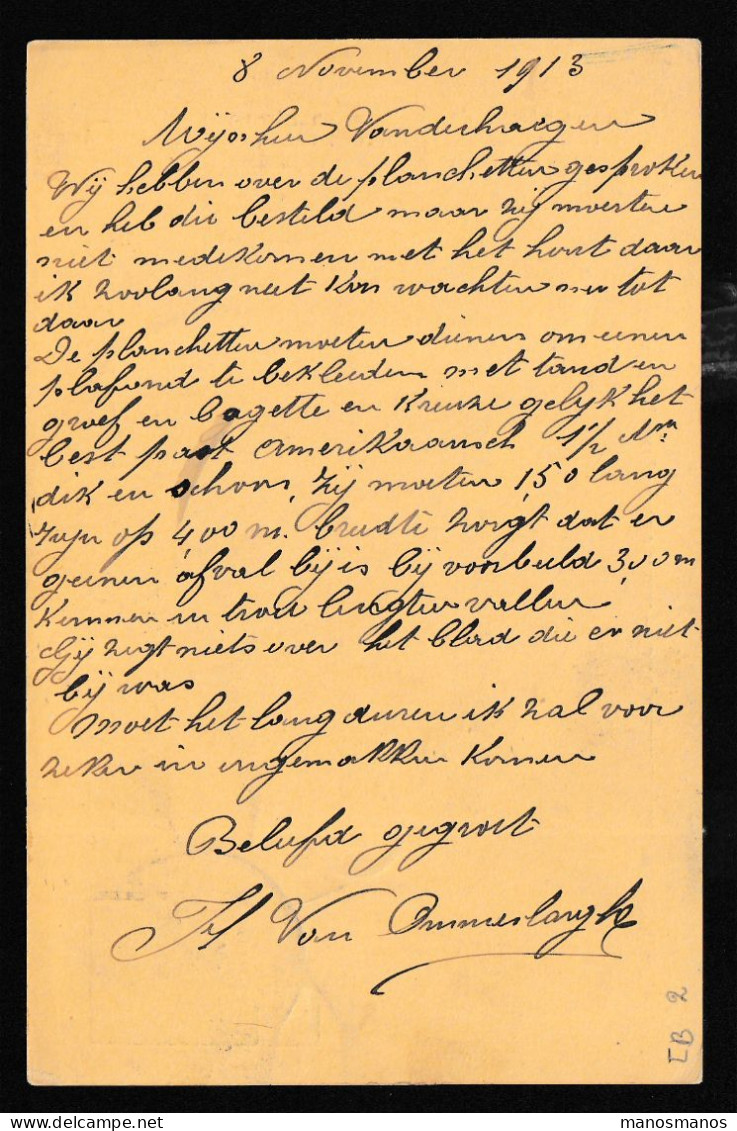 8 November 1913
Mijnheer Vanderhaegen
Wij hebben over de planchetten gesproken
en heb die besteld maar zij moesten
niet medekomen met het hout daar
ik zoolang niet kon wachten tot
daar
De planchetten moeten dienen om eenen
plafond te bekleeden met tand en
groef en bagette en kruize gelyk het
best past Amerikaansch 1 1/2
dik en schoon, Zij moeten 150 lang
zijn op 400 m. breedte zorgt dat er
geenen afval bij is bij voorbeeld 300 m
kommen in lengten vallen
Gij zegt niets over het blad die er niet
bij was
Moet het lang duren ik zal voor
zeker in ongemakken komen
Beleefd gegroet
Van Ommeslaeghe
EB 2
manosmanos